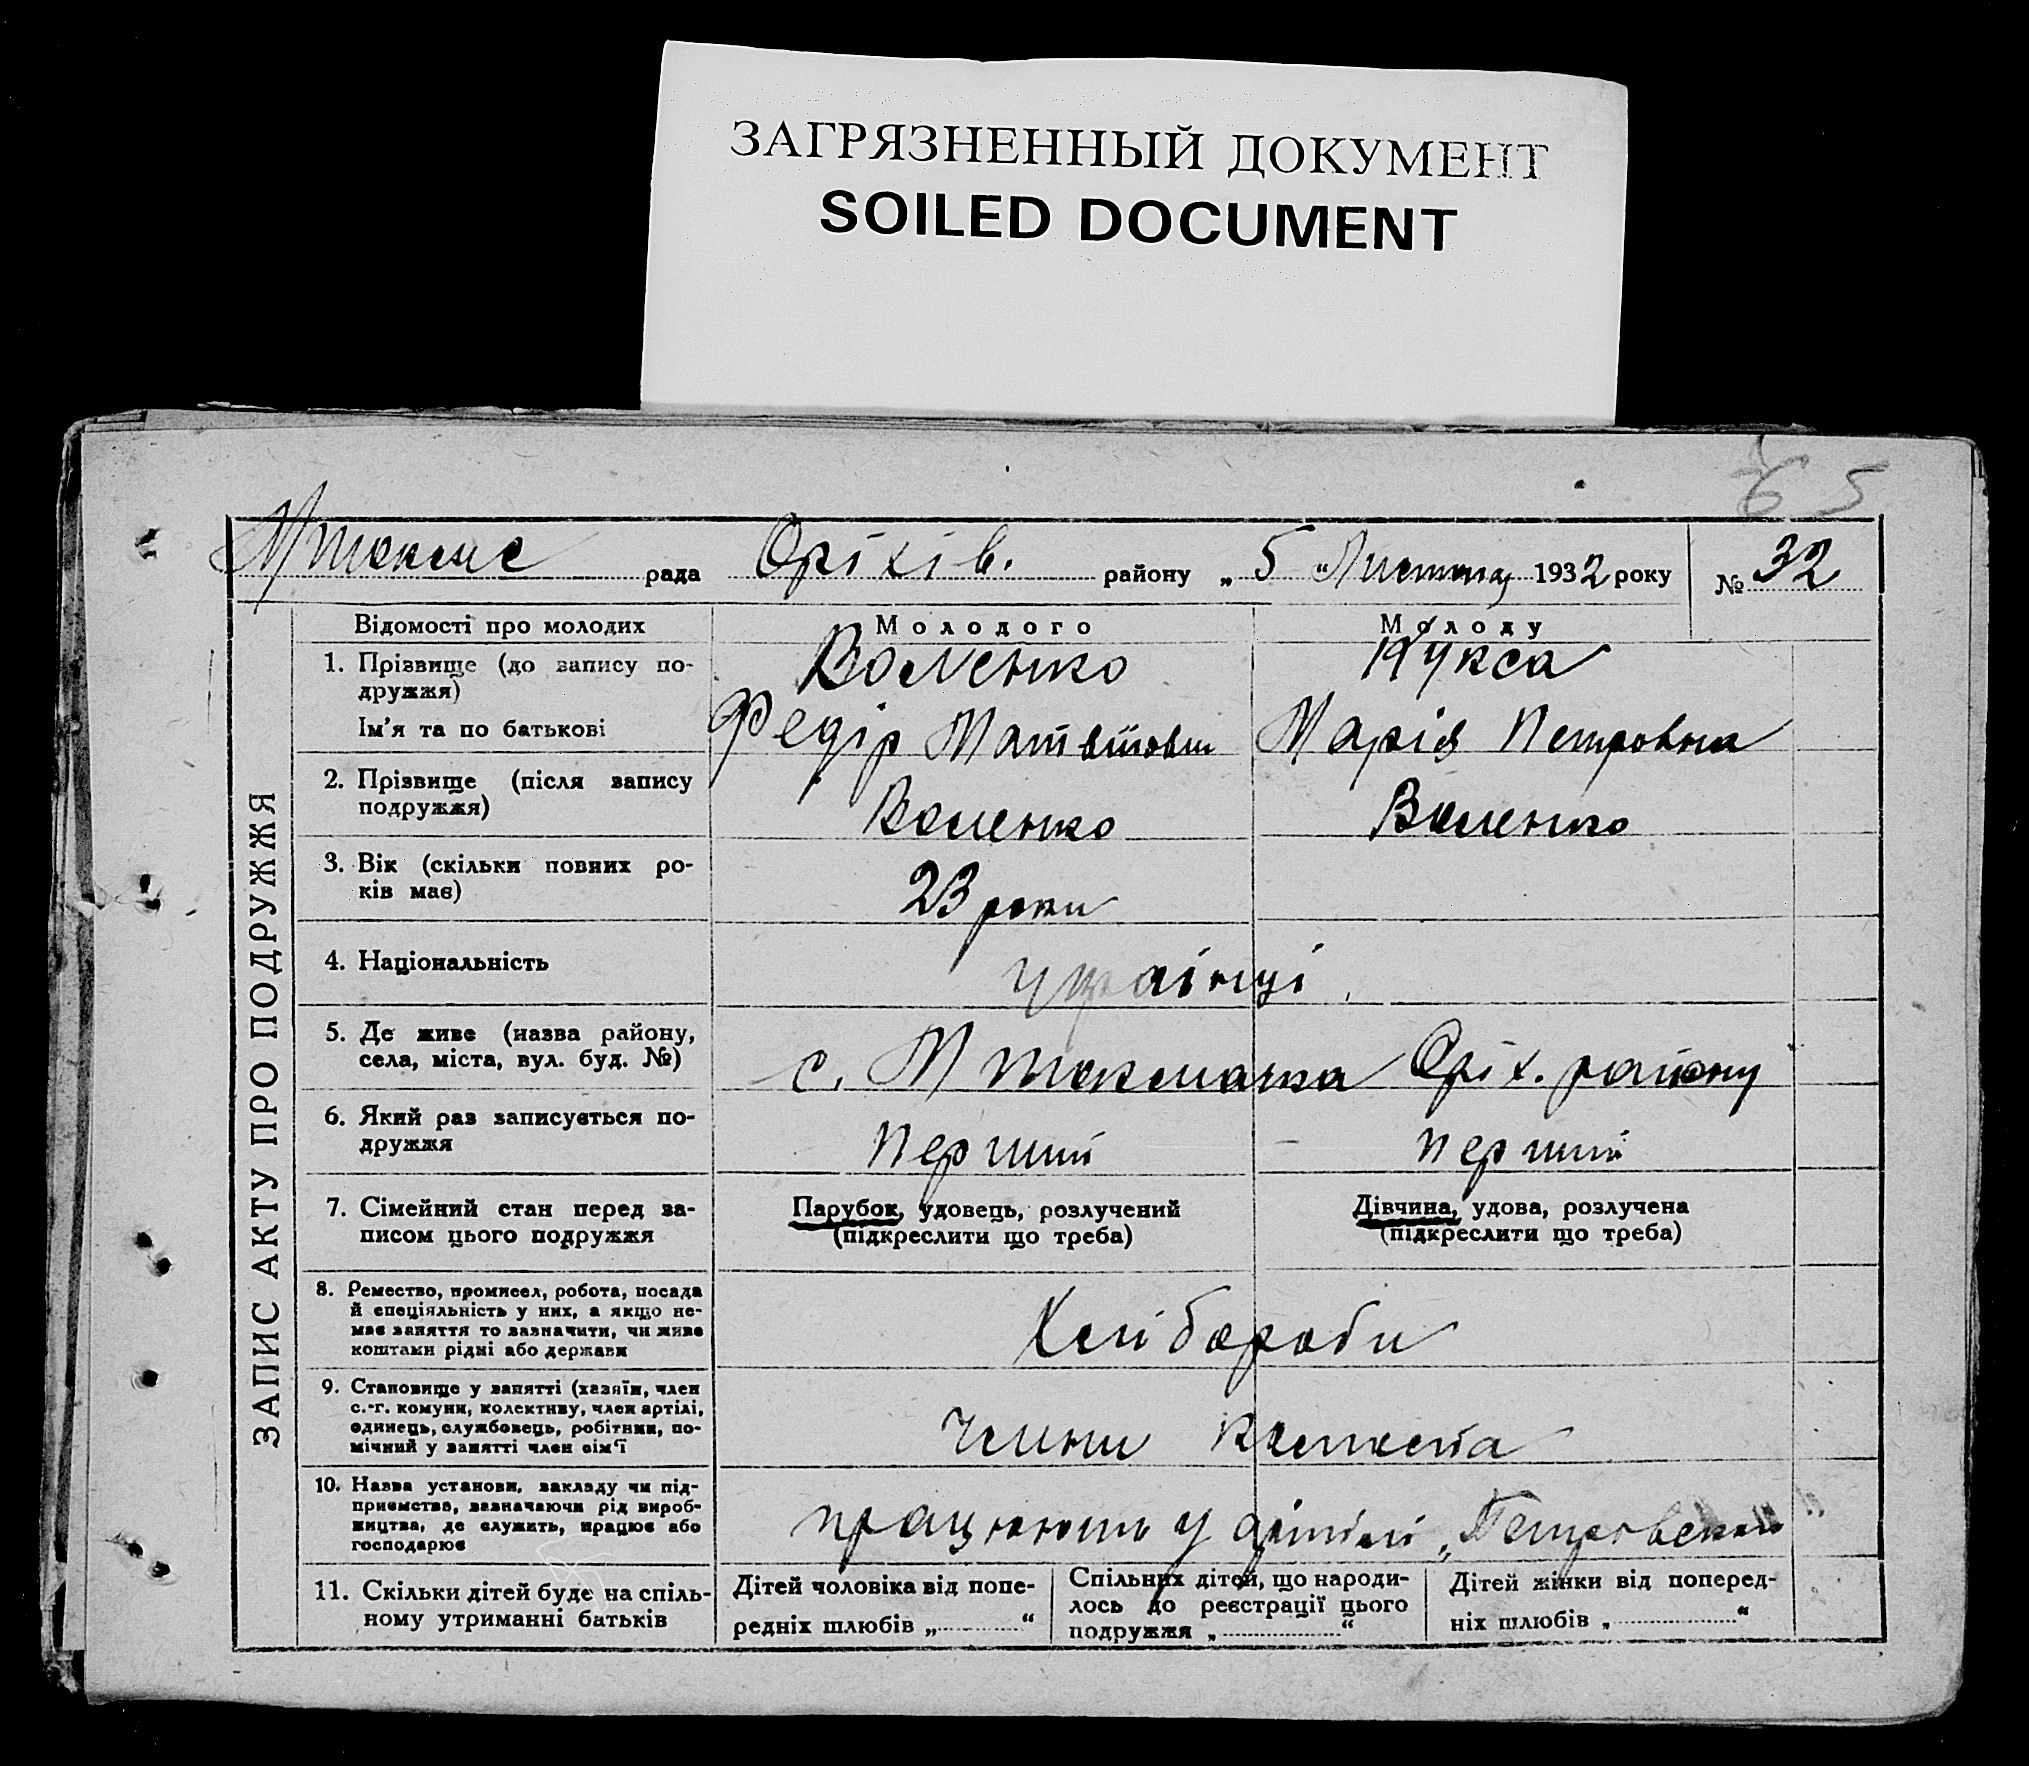 ЗАГРЯЗНЕННЫЙ ДОКУМЕНТ
SOILED DOCUMENT
65
рада Оріхів. району „5“ Листопад 1932 року № 32
ЗАПИС АКТУ ПРО ПОДРУЖЖЯ
Відомості про молодих Молодого Молоду
1. Прізвище (до запису по-
дружжя)
Кукса
Ім'я та по батькові
Федір Матвійович Марія Петровна
2. Прізвище (після запису
подружжя)
3. Вік (скільки повних ро-
ків має)
23 роки
4. Національність
українці
5. Де живе (назва району,
села, міста, вул. буд. №)
с. М Токмачка Оріх. району
6. Який раз записується по-
дружжя
перший перший
7. Сімейний стан перед за-
писом цього подружжя
Парубок, удовець, розлучений
(підкреслити що треба)
Дівчина, удова, розлучена
(підкреслити що треба)
8. Ремество, промисел, робота, посада
й спеціяльність у них, а якщо не-
має заняття то зазначити, чи живе
коштами рідні або держави
Хлібороби
9. Становище у занятті (хазяїн, член
с.-г. комуни, колективу, член артілі,
одинець, службовець, робітник, по-
мічний у занятті член сім'ї
Члини колгоспа
10. Назва установи, закладу чи під-
приємства, зазначаючи рід вироб-
ництва, де служить, працює або
господарює
працюють у артілі
11. Скільки дітей буде на спіль-
ному утриманні батьків
Дітей чоловіка від попе-
редніх шлюбів „ “
Спільних дітей, що народи-
лось до реєстрації цього
подружжя „ “
Дітей жінки від поперед-
ніх шлюбів „ “